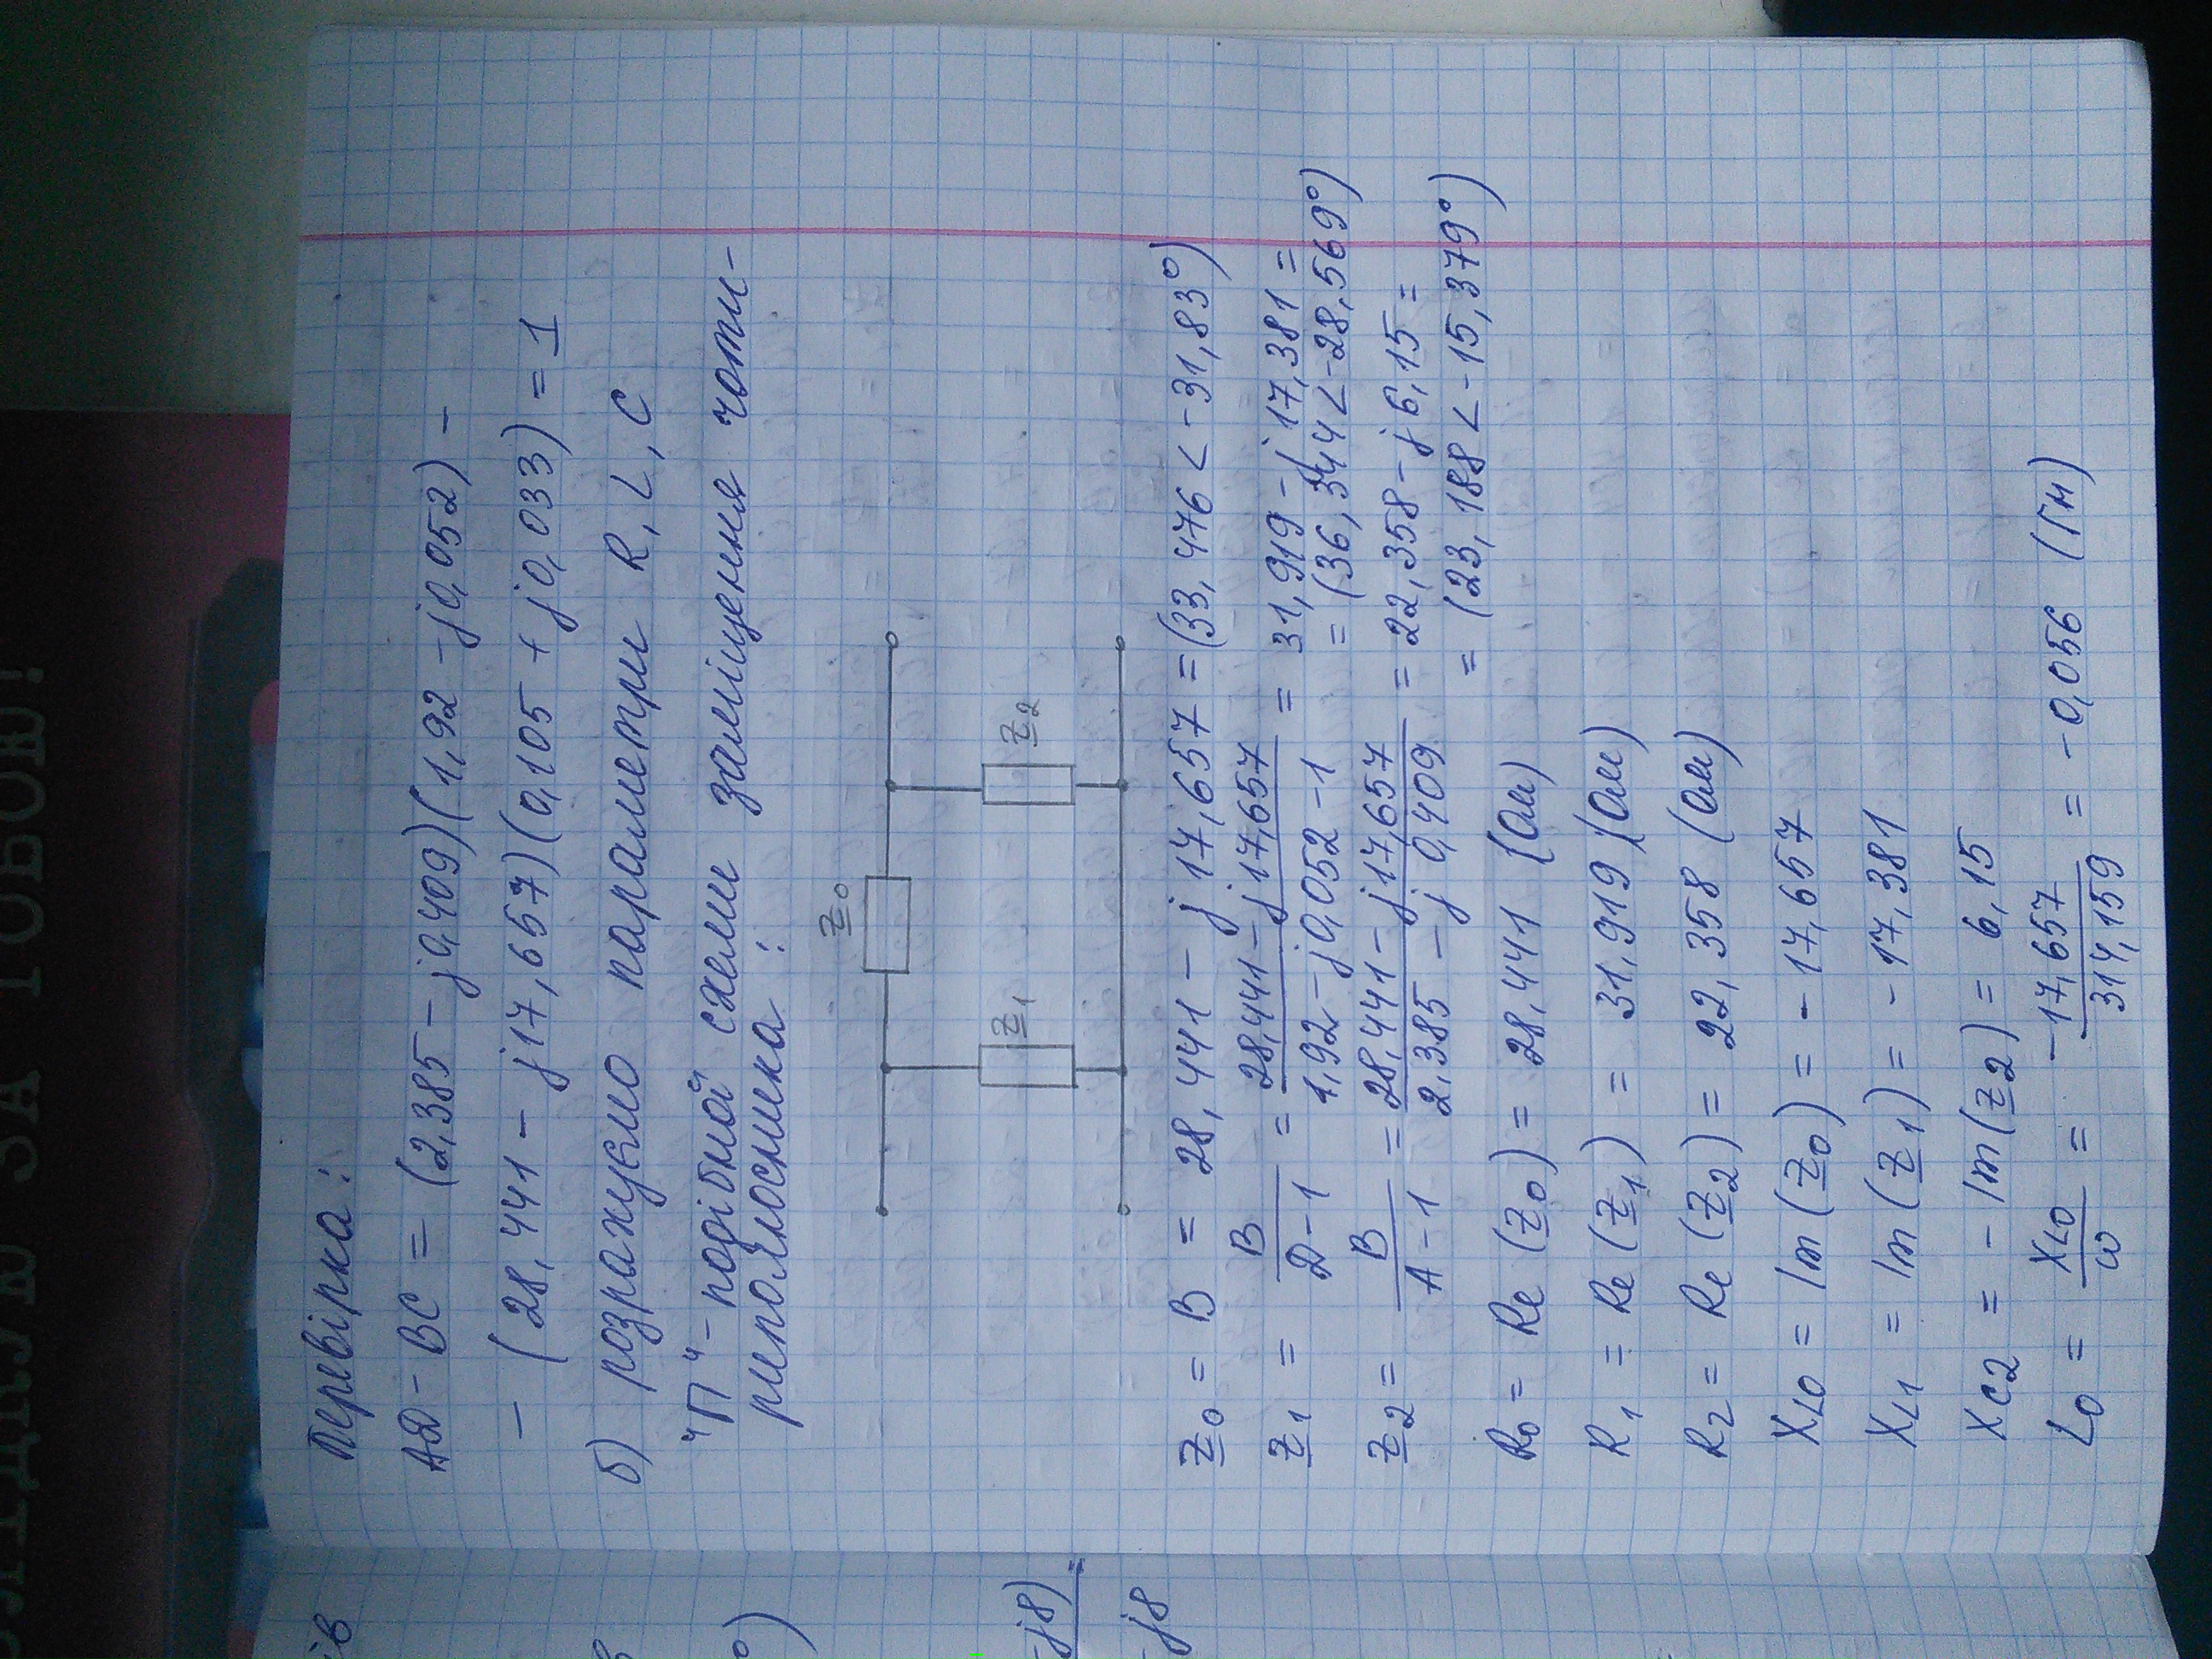 Перевірка:
АД - ВС = (2,385 - j0,409)(1,92 - j0,052) -
- (28,441 - j17,657)(0,105 + j0,033) = 1
б) розрахуємо параметри R, L, C
"П" - подібной схеми заміщення чоти-
риполюсника:
Z0
Z1
Z2
Z0 = B = 28,441 - j17,657 = (33,476 < -31,83°)
Z1 = B / Д-1 = 28,441 - j17,657 / 1,92 - j0,052 - 1 = 31,919 - j17,381 =
= (36,344 < -28,569°)
Z2 = B / A-1 = 28,441 - j17,657 / 2,385 - j0,409 = 22,358 - j6,15 =
= (23,188 < -15,379°)
R0 = Re (Z0) = 28,441 (Ом)
R1 = Re (Z1) = 31,919 (Ом)
R2 = Re (Z2) = 22,358 (Ом)
XL0 = Im (Z0) = -17,657
XL1 = Im (Z1) = -17,381
XC2 = -Im (Z2) = 6,15
L0 = XL0 / ω = - 17,657 / 314,159 = -0,056 (Гн)
ЗА ТОБОЮ!
ів
в
о)
-j8) =
-j8